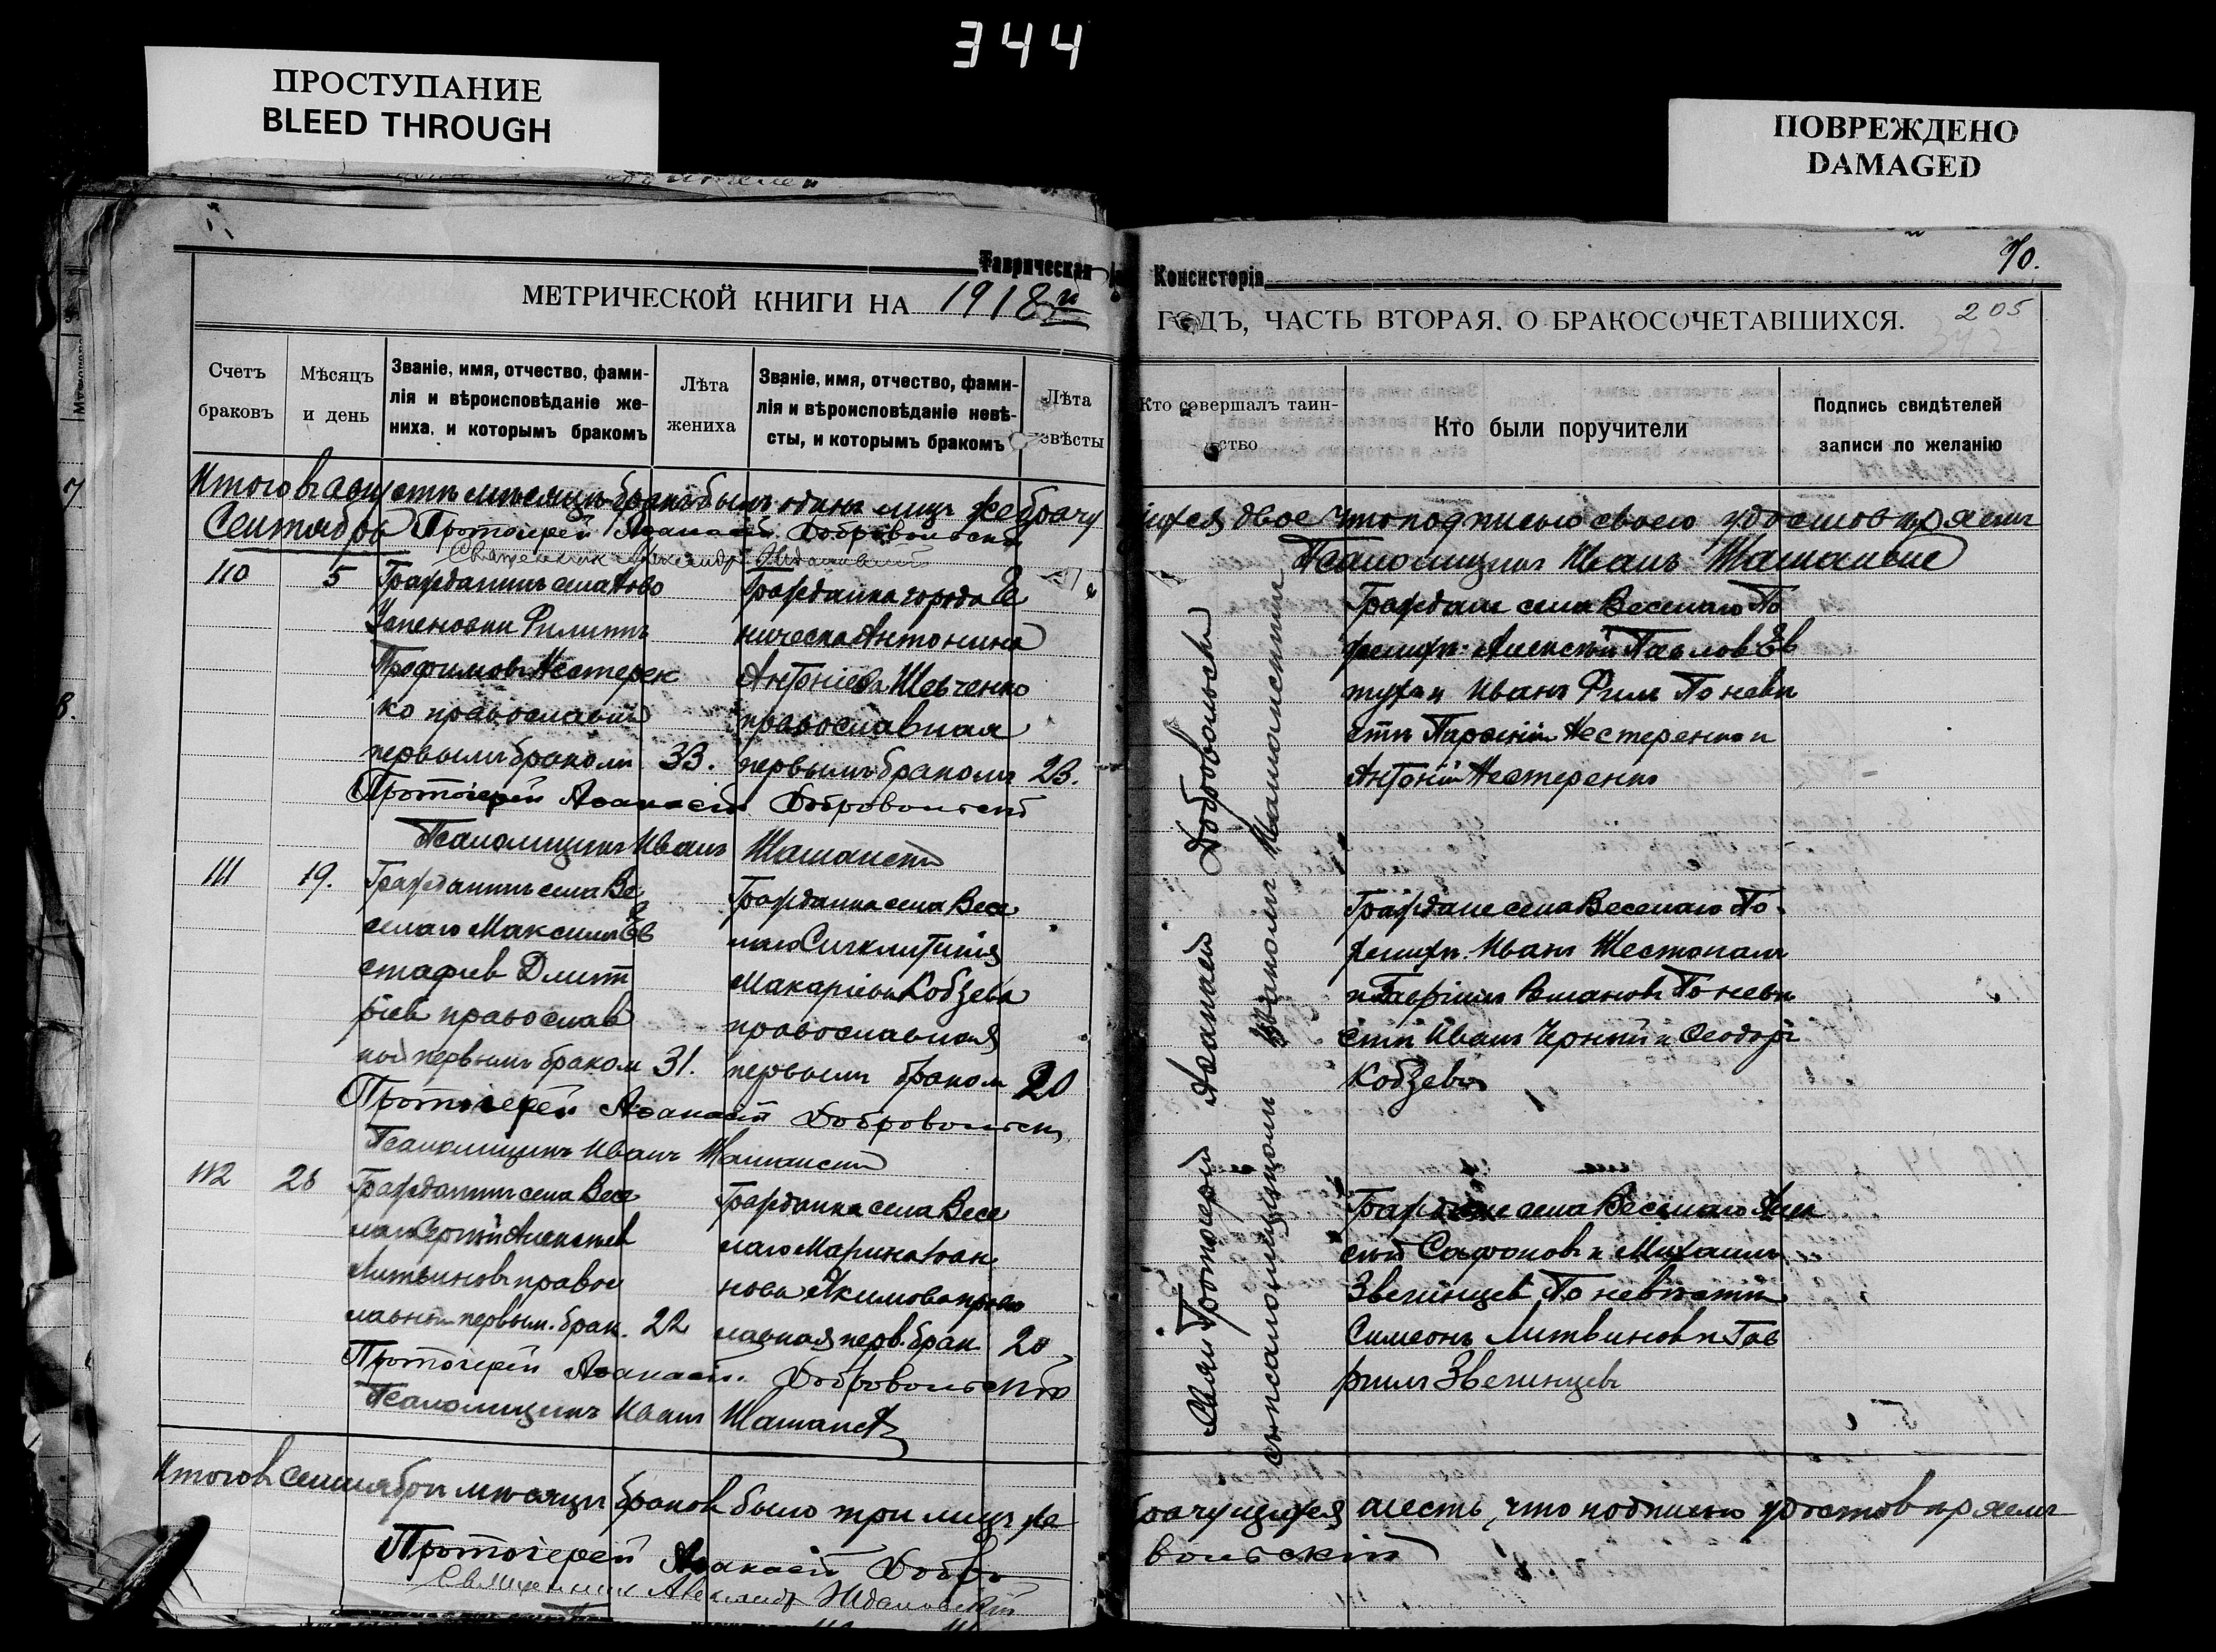 344
ПРОСТУПАНИЕ
BLEED THROUGH
ПОВРЕЖДЕНО
DAMAGED
Таврическая
Консисторія
МЕТРИЧЕСКОЙ КНИГИ НА 1918й
ГОДЪ, ЧАСТЬ ВТОРАЯ, О БРАКОСОЧЕТАВШИХСЯ.
205
Счетъ
браковъ
Мѣсяцъ
и день
Званіе, имя, отчество, фами-
лія и вѣроисповѣданіе же-
ниха, и которымъ бракомъ
Лѣта
жениха
Званіе, имя, отчество, фами-
лія и вѣроисповѣданіе невѣ-
сты, и которымъ бракомъ
Лѣта
невѣсты
Кто совершалъ таин-
ство
Кто были поручители
Подпись свидѣтелей
записи по желанію
Итого въ августѣ мѣсяцѣ браковъ былъ одинъ лицъ же брачу
щихся двое что подписью своею удостовѣряемъ
Сентябрь Протоіерей Аѳанасій Добровольскій
Священникъ Александръ Ждановскій
Псаломщикъ Иванъ
110
5
Гражданинъ села Ново
Успеновки Филиппъ
Трофимовъ Нестерен
ко православный
первымъ бракомъ
33.
Гражданка города Ге
ническа Антонина
Антоніева Шевченко
православная
первымъ бракомъ
23.
Граждане села Веселаго По
жениху: Алексѣй Павловъ Ев
тухъ и Иванъ Филь По невѣ
стѣ Нестеренко и
Антоній Нестеренко
Протоіерей Аѳанасій Добровольскій
Псаломщикъ Иванъ
111
19.
Гражданинъ села Ве
селаго Максимъ Ев
стафіев Дмит
ріев православ
ный первымъ браком
31.
Гражданка села Весе
лаго Синклитикія
Макаріева Кобзева
православная
первымъ браком
20
Граждане села Веселаго По
жениху: Иванъ Шестопалъ
и Гавріилъ По невѣ
стѣ Иванъ Черный и Ѳеодоръ
Кобзевъ
Протоіерей Аѳанасій Добровольскій
Псаломщикъ Иванъ
112
26
Гражданинъ села Весе
лаго Сергѣй Алексѣев
Литвиновъ правос
лавный первым. брак.
22
Гражданка села Весе
лаго Марина Іоан
нова Якимова правос
лавная перв. брак
20
Граждане села Веселаго Алек
сѣй Сафоновъ и Михаилъ
Звегинцев По невѣстѣ
Симеонъ Литвиновъ и Гав
риилъ Звегинцевъ
Протоіерей Аѳанасій Добровольскій
Псаломщикъ Иванъ
Протоіерей Аѳанасій Добровольскій
съ псаломщикомъ Иваномъ
Итого въ Сентябрѣ мѣсяцѣ браков было три лицъ же
брачущихся шесть, что подписью удостовѣряемъ
Протоіерей Аѳанасій Добро
вольскій
Священникъ Александр Ждановскій